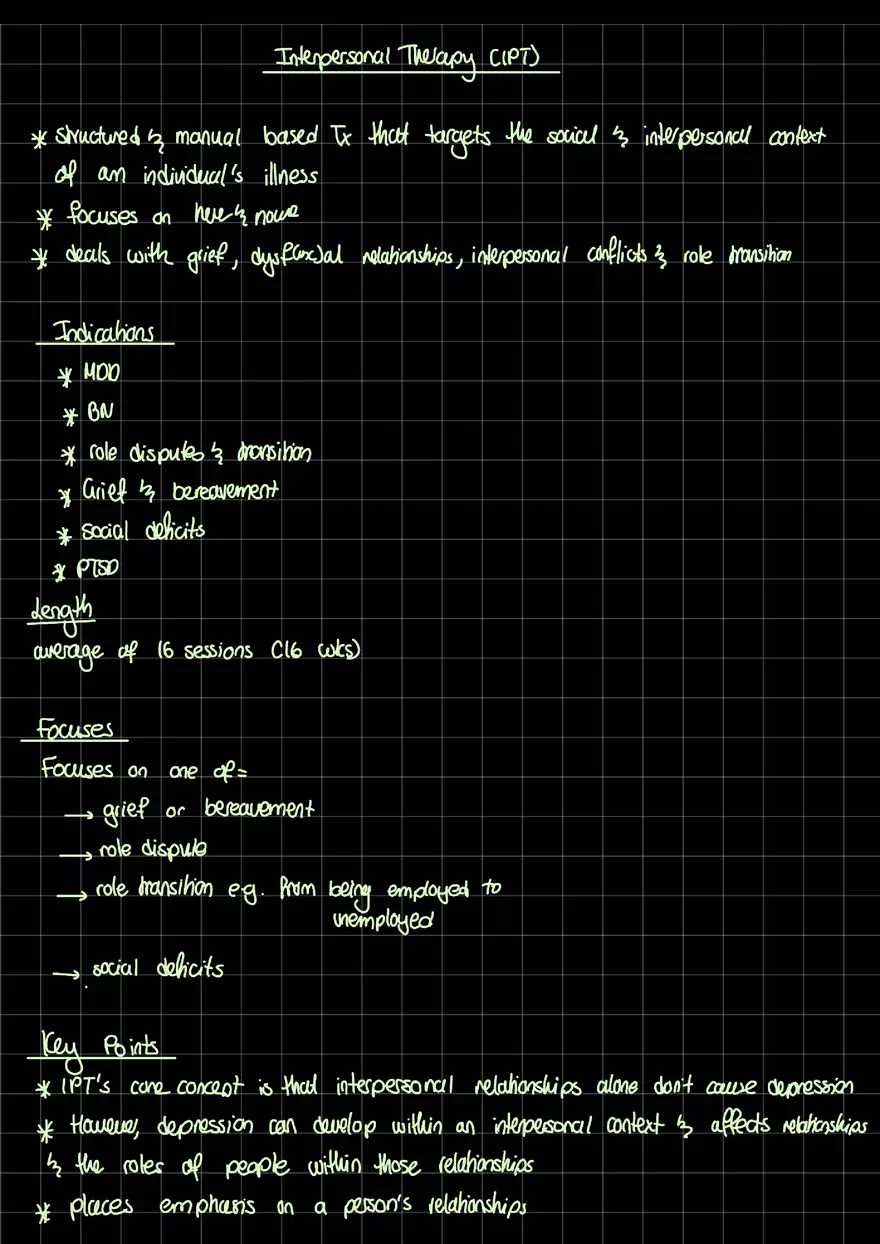 Interpersonal Therapy (IPT)
* structured & manual based Tx that targets the social & interpersonal context
of an individual's illness
* focuses on here & nowe
* deals with grief, dysf(unc)al relationships, interpersonal conflicts & role transition
Indications
* MDD
* BN
* role disputes & transition
* Grief & bereavement
* social deficits
* PTSD
Length
average of 16 sessions (16 wks)
Focuses
Focuses on one of=
→ grief or bereavement
→ role dispute
→ role transition eg. from being employed to
unemployed
→ social deficits
Key Points
* IPT's core concept is that interpersonal relationships alone don't cause depression
* However, depression can develop within an interpersonal context & affects relationships
& the roles of people within those relationships
* places emphasis on a person's relationships